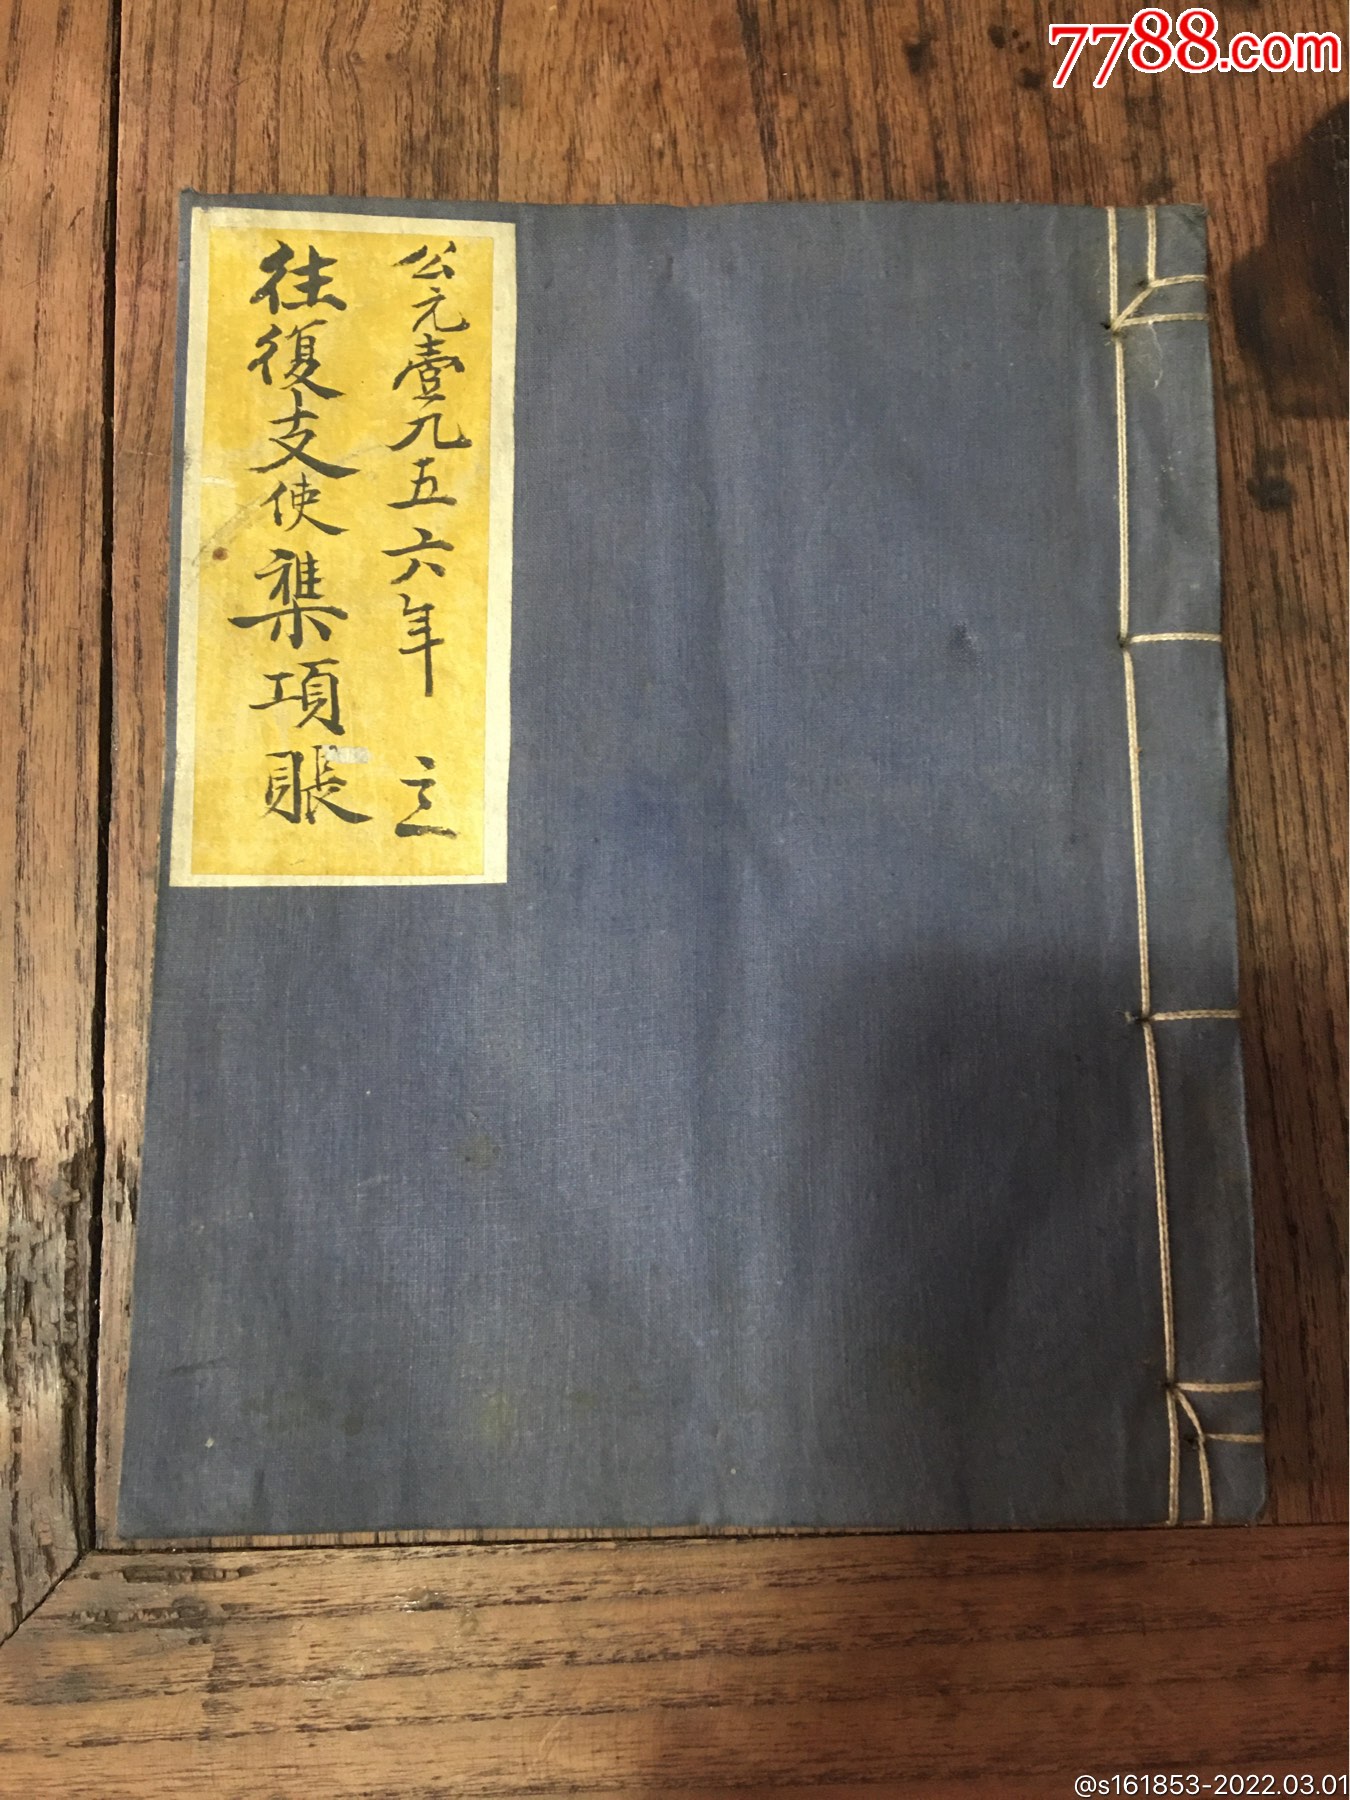 7788.com
公元壹九五六年 立
往復支使襍項賬
@s161853-2022.03.01